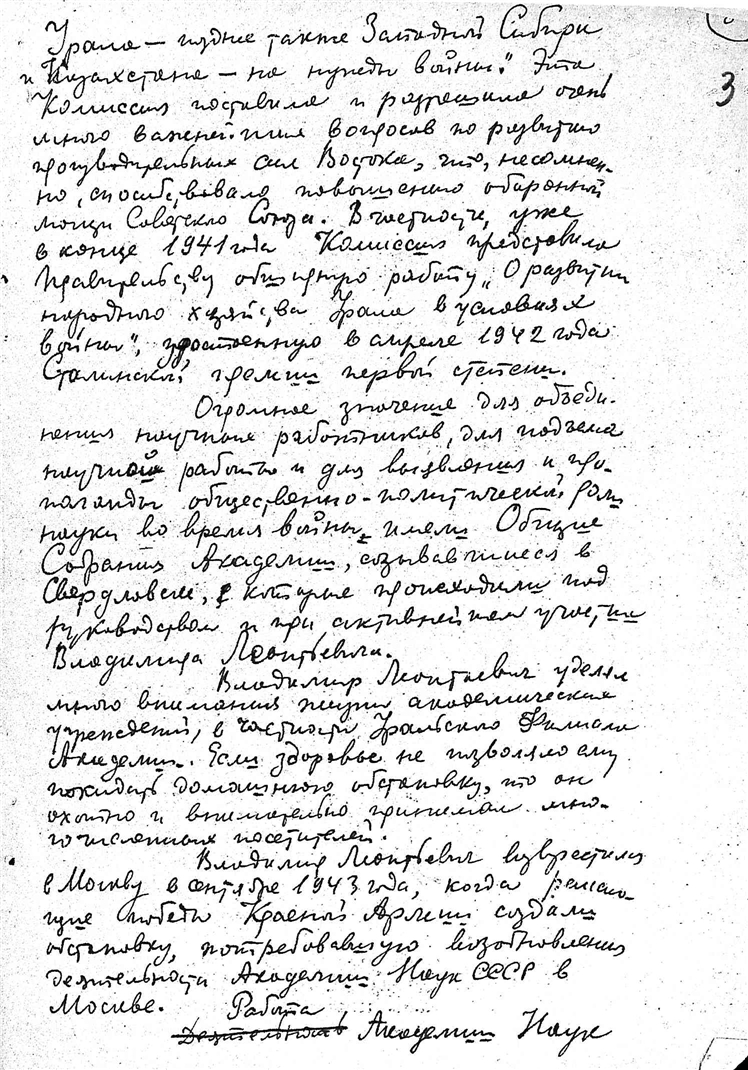 Урала — позднее также Западной Сибири
и Казахстана — на нужды войны." Эта
Комиссия поставила и разрешила очень
много важнейших вопросов по развитию
производительных сил Востока, что, несомнен-
но, способствовало повышению оборонной
мощи Советского Союза. В частности, уже
в конце 1941 года Комиссия представила
Правительству обширную работу „О развитии
народного хозяйства Урала в условиях
войны", удостоенную в апреле 1942 года
Сталинской премии первой степени.
Огромное значение для объеди-
нения научных работников, для подъема
научной работы и для выявления и про-
паганды общественно-политической роли
науки во время войны, имели Общие
Собрания Академии, созывавшиеся в
Свердловске, которые происходили под
руководством и при активнейшем участии
Владимира Леонтьевича.
Владимир Леонтьевич уделял
много внимания жизни академических
учреждений, в частности Уральского Филиала
Академии. Если здоровье не позволяло ему
покидать домашнюю обстановку, то он
охотно и внимательно принимал мно-
гочисленных посетителей.
Владимир Леонтьевич возвратился
в Москву в сентябре 1943 года, когда решаю-
щие победы Красной Армии создали
обстановку, потребовавшую возобновления
деятельности Академии Наук СССР в
Москве. Работа
Деятельность Академии Наук
3